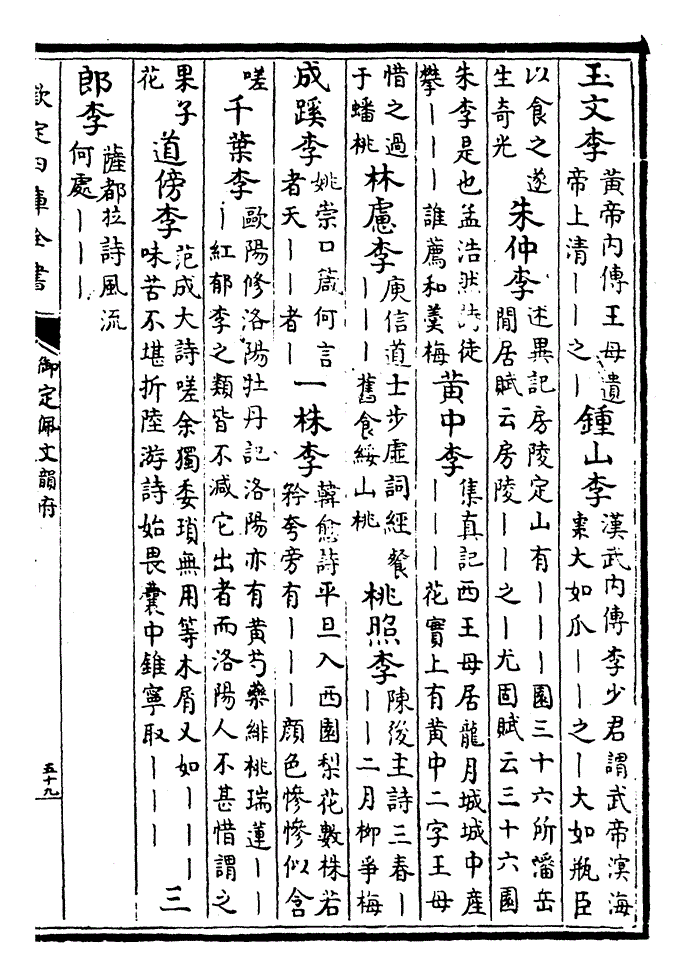 玉文李 黃帝內傳王母遺帝上清｜｜之｜ 鍾山李 漢武內傳李少君謂武帝溟海棗大如瓜｜｜之｜大如瓶臣
以食之遂生奇光 朱仲李 述異記房陵定山有｜｜｜園三十六所潘岳閒居賦云房陵｜｜之｜尤固賦云三十六園
朱李是也孟浩然詩徒攀｜｜｜誰薦和羹梅 黃中李 集真記西王母居龍月城城中產｜｜｜花實上有黃中二字王母
惜之過于蟠桃 林慮李 庾信道士步虛詞經餐｜｜｜舊食綏山桃 桃照李 陳後主詩三春｜｜｜二月柳爭梅
成蹊李 姚崇口箴何言者天｜｜者｜ 一株李 韓愈詩平旦入西園梨花數株若矜夸旁有｜｜｜顏色慘慘似含
嗟 千葉李 歐陽修洛陽牡丹記洛陽亦有黃芍藥緋桃瑞蓮｜｜｜紅郁李之類皆不減它出者而洛陽人不甚惜謂之
果子花 道傍李 范成大詩嗟余獨委瑣無用等木屑又如｜｜｜味苦不堪折陸游詩始畏囊中錐寧取｜｜｜ 三
郎李 薩都拉詩風流何處｜｜｜
欽定四庫全書 御定佩文韻府 五十九